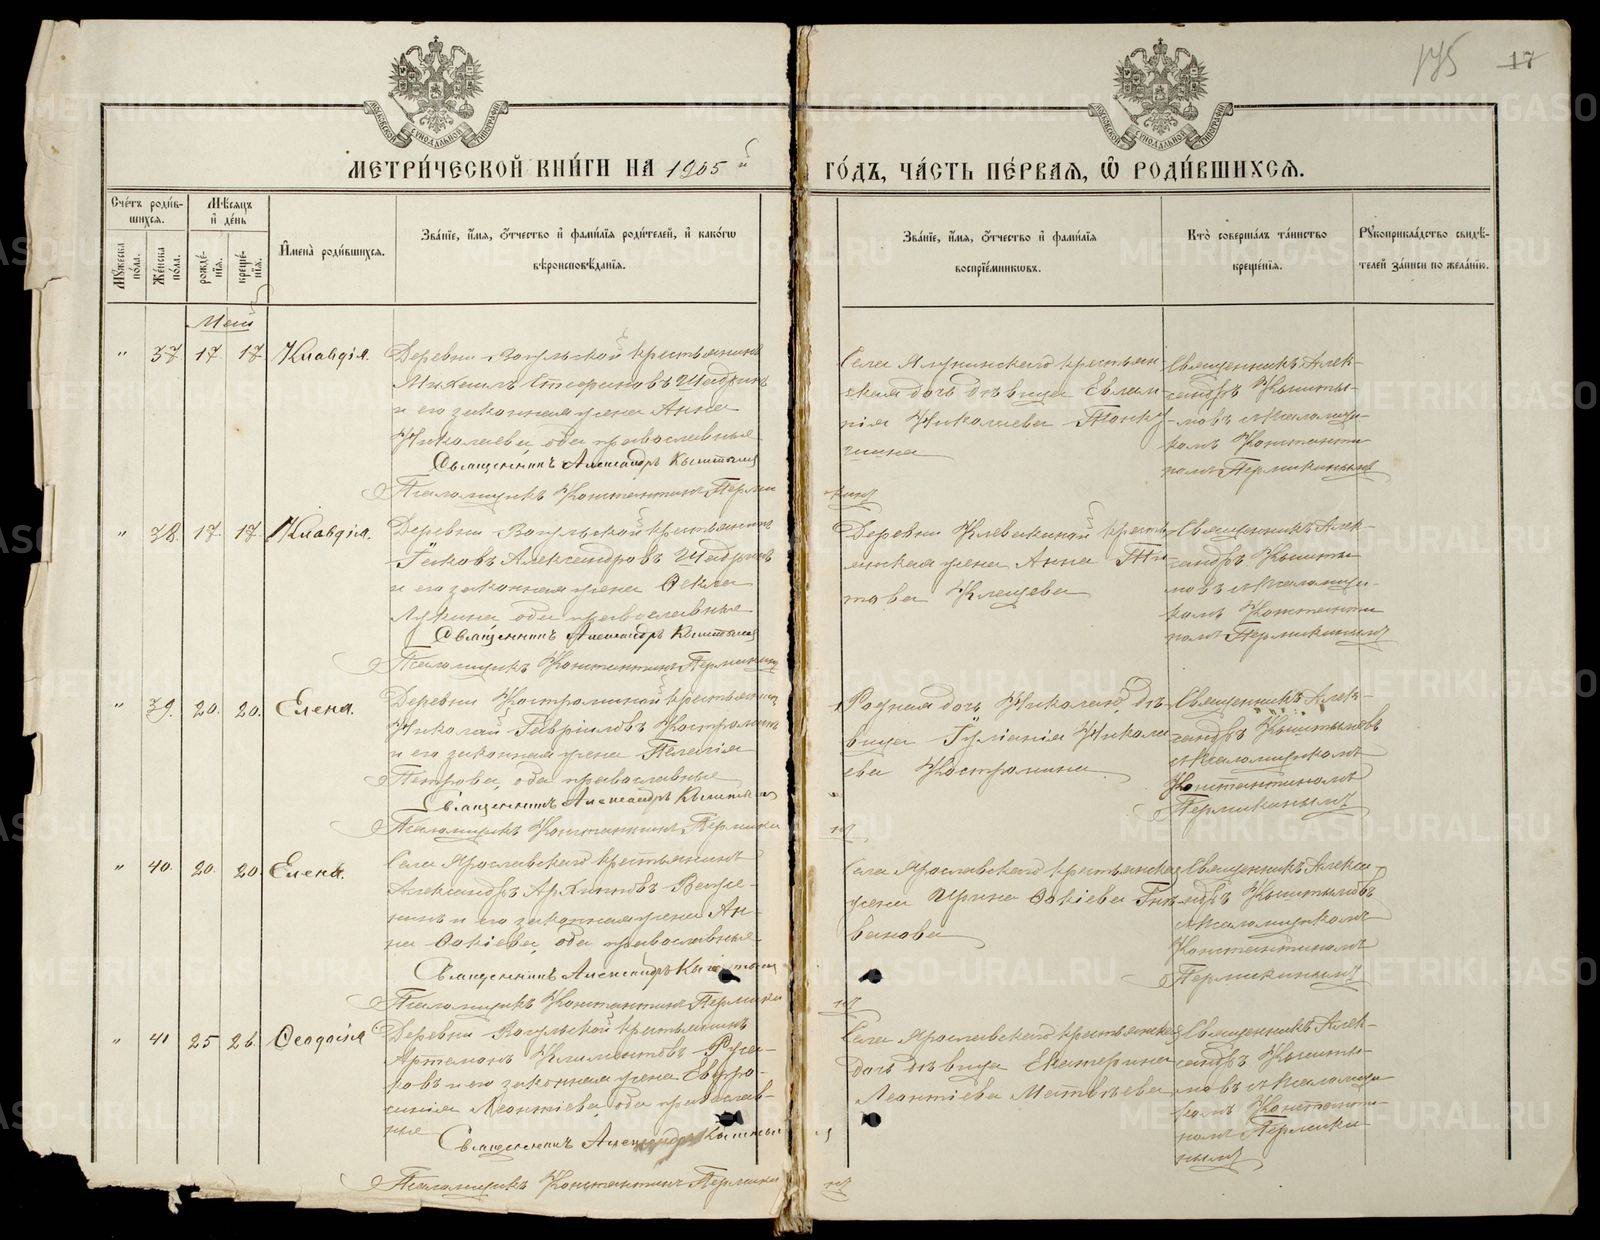 175 17
МОСКОВСКОЙ СѴНОДАЛЬНОЙ ТИПОГРАФІИ
МОСКОВСКОЙ СѴНОДАЛЬНОЙ ТИПОГРАФІИ
МЕТРИ́ЧЕСКОЙ КНИ́ГИ НА 1905й ГО́ДЪ, ЧА́СТЬ ПЕ́РВАѦ, Ѡ҆ РОДИ́ВШИХСѦ.
Сче́тъ роди́в-
шихся.
Мꙋ́жеска по́ла.
Же́нска по́ла.
Мѣ́сяцъ
и҆ де́нь
рожде́-
нїя.
креще́-
нїя.
И҆мена̀ роди́вшихся.
Зва́нїе, и҆́мя, ѻ҆́тчество и҆ фами́лїя роди́телей, и҆ како́гѡ
вѣроисповѣ́данїя.
Зва́нїе, и҆́мя, ѻ҆́тчество и҆ фами́лїя
воспрїе́мникѡвъ.
Кто̀ соверша́лъ та́инство
креще́нїя.
Рꙋкоприкла́дство свидѣ́-
телей за́писи по жела́нїю.
Май
" 37 17 17 Клавдія.
Деревни Вогульской крестьянинъ
Михаилъ Стефановъ Шадринъ
и его законная жена Анна
Николаева, оба православные
Священникъ Александръ Кыштымов
Псаломщикъ Константинъ Перми
кинъ
Села крестьян-
ская дочь дѣвица Евлам-
пія Николаева
Священникъ Алек-
сандръ Кышты-
мовъ съ псаломщи-
комъ Константи
номъ Пермикинымъ
" 38. 17 17 Клавдія.
Деревни Вогульской крестьянинъ
Іаковъ Александровъ Шадринъ
и его законная жена Ѳекла
Лукина, оба православные
Священникъ Александръ Кыштымов
Псаломщикъ Константинъ Пермикинъ
Деревни Клевакиной кресть-
янская жена Анна Ти-
това Клещева
Священникъ Алек-
сандръ Кышты
мовъ съ псаломщи-
комъ Константи
номъ Пермикинымъ
" 39. 20. 20. Елена.
Деревни Костроминой крестьянинъ
Николай Гавриловъ Костроминъ
и его законная жена Пелагія
Петрова, оба православные
Священникъ Александръ Кыштымов
Псаломщикъ Константинъ Пермики
нъ
Родная дочь Николая дѣ-
вица Іуліанія Никола
ева Костромина
Священникъ Алек-
сандръ Кыштымовъ
съ псаломщикомъ
Константиномъ
Пермикинымъ
" 40. 20. 20. Елена.
Села Ярославскаго крестьянинъ
Александръ Архиповъ
и его законная жена Ан-
на Ѳокіева, оба православные
Священникъ Александръ Кыштымов
Псаломщикъ Константинъ Пермики
нъ
Села Ярославскаго крестьянская
жена Ирина Ѳокіева
Священникъ Алекса-
ндръ Кыштымовъ
съ псаломщикомъ
Константиномъ
Пермикинымъ
" 41 25 26. Ѳеодосія
Деревни Вогульской крестьянинъ
Артемонъ Климентовъ Руса-
ковъ и его законная жена Евфро-
синія Леонтіева, оба православ-
ные
Священникъ Александръ Кыштым
Псаломщикъ Константинъ Пермики
нъ
Села Ярославскаго крестьянская
дочь дѣвица Екатерина
Леонтіева Матвѣева
Священникъ Алек-
сандръ Кышты-
мовъ съ псаломщи
комъ Константи-
номъ Пермики-
нымъ
METRIKI.GASO-URAL.RU